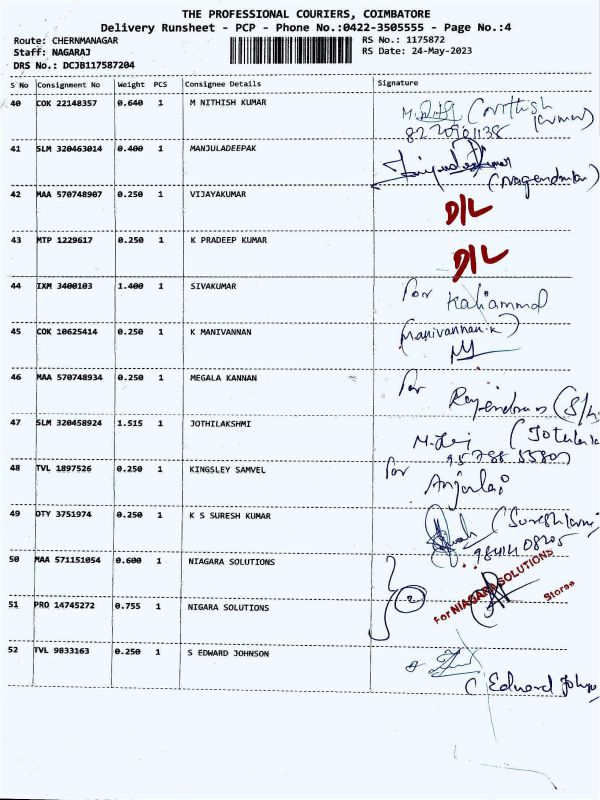 THE PROFESSIONAL COURIERS, COIMBATORE
Delivery Runsheet - PCP - Phone No.:0422-3505555 - Page No.:4
Route: CHERNMANAGAR RS No.: 1175872
Staff: NAGARAJ RS Date: 24-May-2023
DRS No.: DCJB117587204
S No Consignment No Weight PCS Consignee Details Signature
40 COK 22148357 0.640 1 M NITHISH KUMAR (Nithish
41 SLM 320463014 0.400 1 MANJULADEEPAK
42 MAA 570748907 0.250 1 VIJAYAKUMAR D/L
43 MTP 1229617 0.250 1 K PRADEEP KUMAR D/L
44 IXM 3400103 1.400 1 SIVAKUMAR for
45 COK 10625414 0.250 1 K MANIVANNAN (Manivannan.k)
46 MAA 570748934 0.250 1 MEGALA KANNAN for
47 SLM 320458924 1.515 1 JOTHILAKSHMI
48 TVL 1897526 0.250 1 KINGSLEY SAMVEL for
49 OTY 3751974 0.250 1 K S SURESH KUMAR
50 MAA 571151054 0.600 1 NIAGARA SOLUTIONS
For NIAGARA SOLUTIONS
51 PRO 14745272 0.755 1 NIGARA SOLUTIONS 2
Stores
52 TVL 9833163 0.250 1 S EDWARD JOHNSON
(Edward